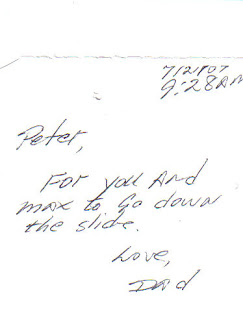 7/21/07
9:28AM
Peter,
For you And
max to Go down
the slide.
Love,
Dad